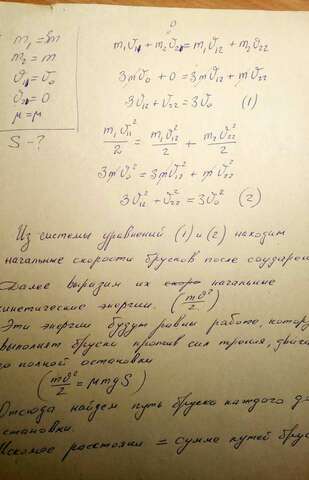 m₁ = 3m
m₂ = m
ϑ₁₁ = ϑ₀
ϑ₂₁ = 0
μ = μ
S - ?
0
m₁ϑ₁₁ + m₂ϑ₂₁ = m₁ϑ₁₂ + m₂ϑ₂₂
3mϑ₀ + 0 = 3mϑ₁₂ + mϑ₂₂
3ϑ₁₂ + ϑ₂₂ = 3ϑ₀ (1)
m₁ϑ₁₁²/2 = m₁ϑ₁₂²/2 + m₂ϑ₂₂²/2
3mϑ₀² = 3mϑ₁₂² + mϑ₂₂²
3ϑ₁₂² + ϑ₂₂² = 3ϑ₀² (2)
Из системы уравнений (1) и (2) находим
начальные скорости брусков после соударен
Далее выразим их начальные
кинетические энергии. (mϑ²/2)
Эти энергии будут равны работе, котору
выполнят бруски против сил трения, двига
до полной остановки
(mϑ²/2 = μmgS)
Отсюда найдем путь бруска каждого до
остановки.
Искомое расстояни = сумме путей брус